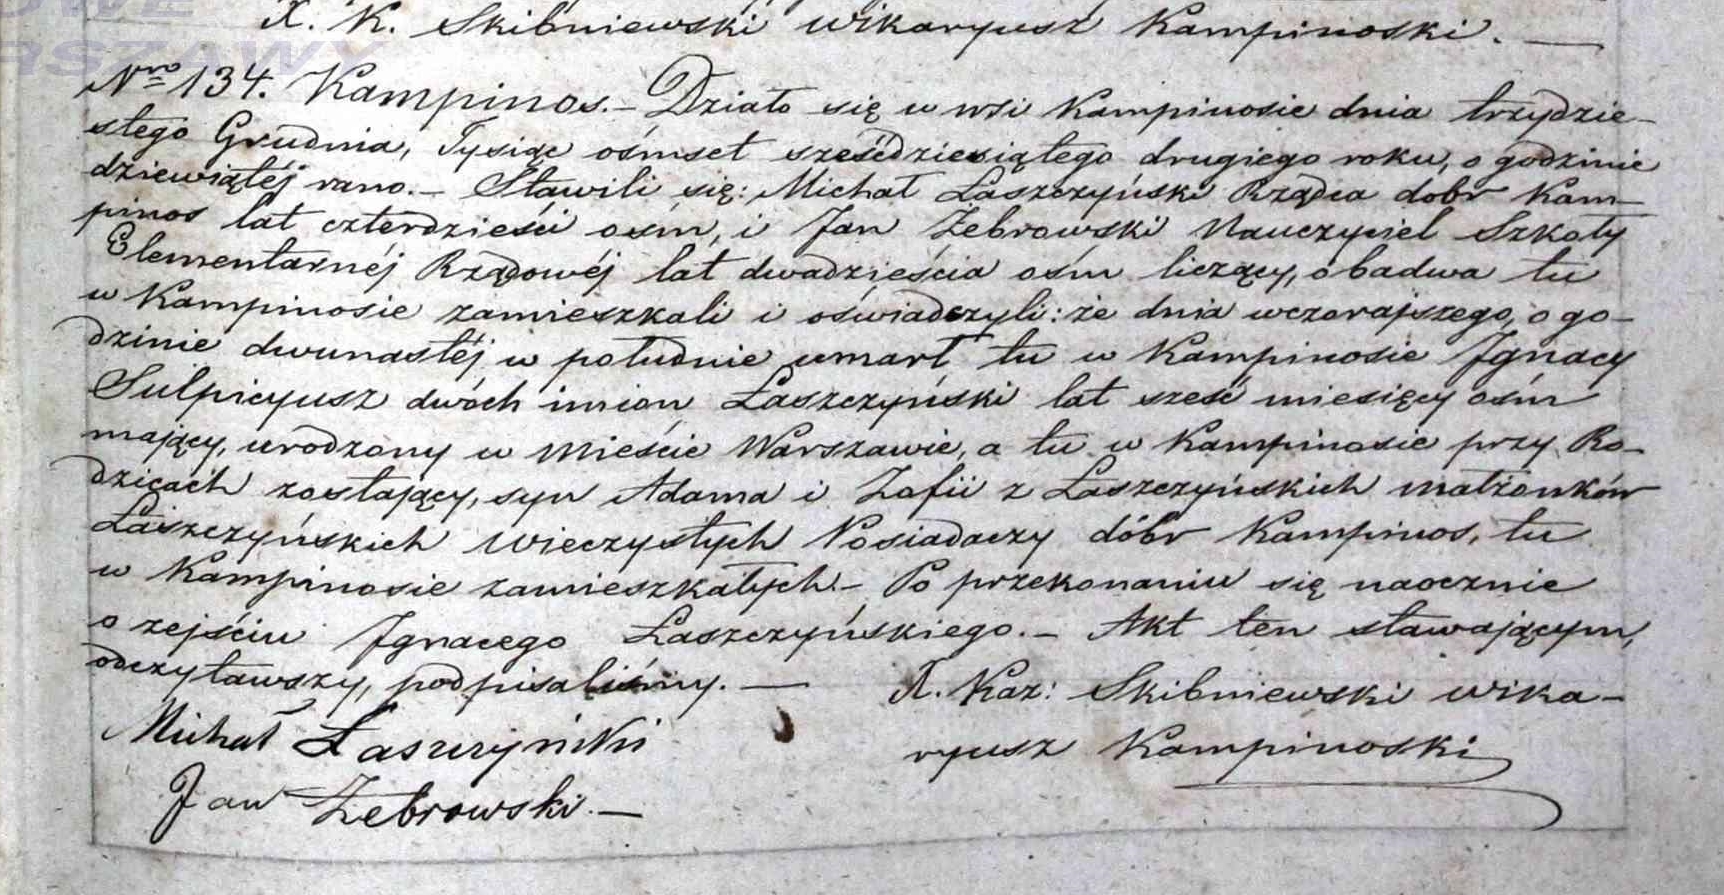 OWE
RSZAWY
X. K. Skibniewski Wikaryusz Kampinoski. —
Nro 134. Kampinos. – Działo się w wsi Kampinosie dnia trzydzie-
stego Grudnia, Tysiąc ośmset sześćdziesiątego drugiego roku, o godzinie
dziewiątéj rano. – Stawili się: Michał Łaszczyński Rządca dóbr Kam-
pinos lat czterdzieści ośm, i Jan Żebrowski Nauczyciel Szkoły
Elementarnéj Rządowéj lat dwadzieścia ośm liczący, obadwa tu
w Kampinosie zamieszkali i oświadczyli: że dnia wczorajszego, o go-
dzinie dwunastéj w południe umarł tu w Kampinosie Ignacy
Sulpicyusz dwóch imion Łaszczyński lat sześć miesięcy ośm
mający, urodzony w Mieście Warszawie, a tu w Kampinosie przy Ro-
dzicach zostający, syn Adama i Zofii z Łaszczyńskich małżonków
Łaszczyńskich Wieczystych Posiadaczy dóbr Kampinos, tu
w Kampinosie zamieszkałych. – Po przekonaniu się naocznie
o zejściu Ignacego Łaszczyńskiego. – Akt ten stawającym,
odczytawszy, podpisaliśmy. — X. Kaz: Skibniewski wika-
ryusz Kampinoski
Michał Łaszczyński
Jan Żebrowski. —